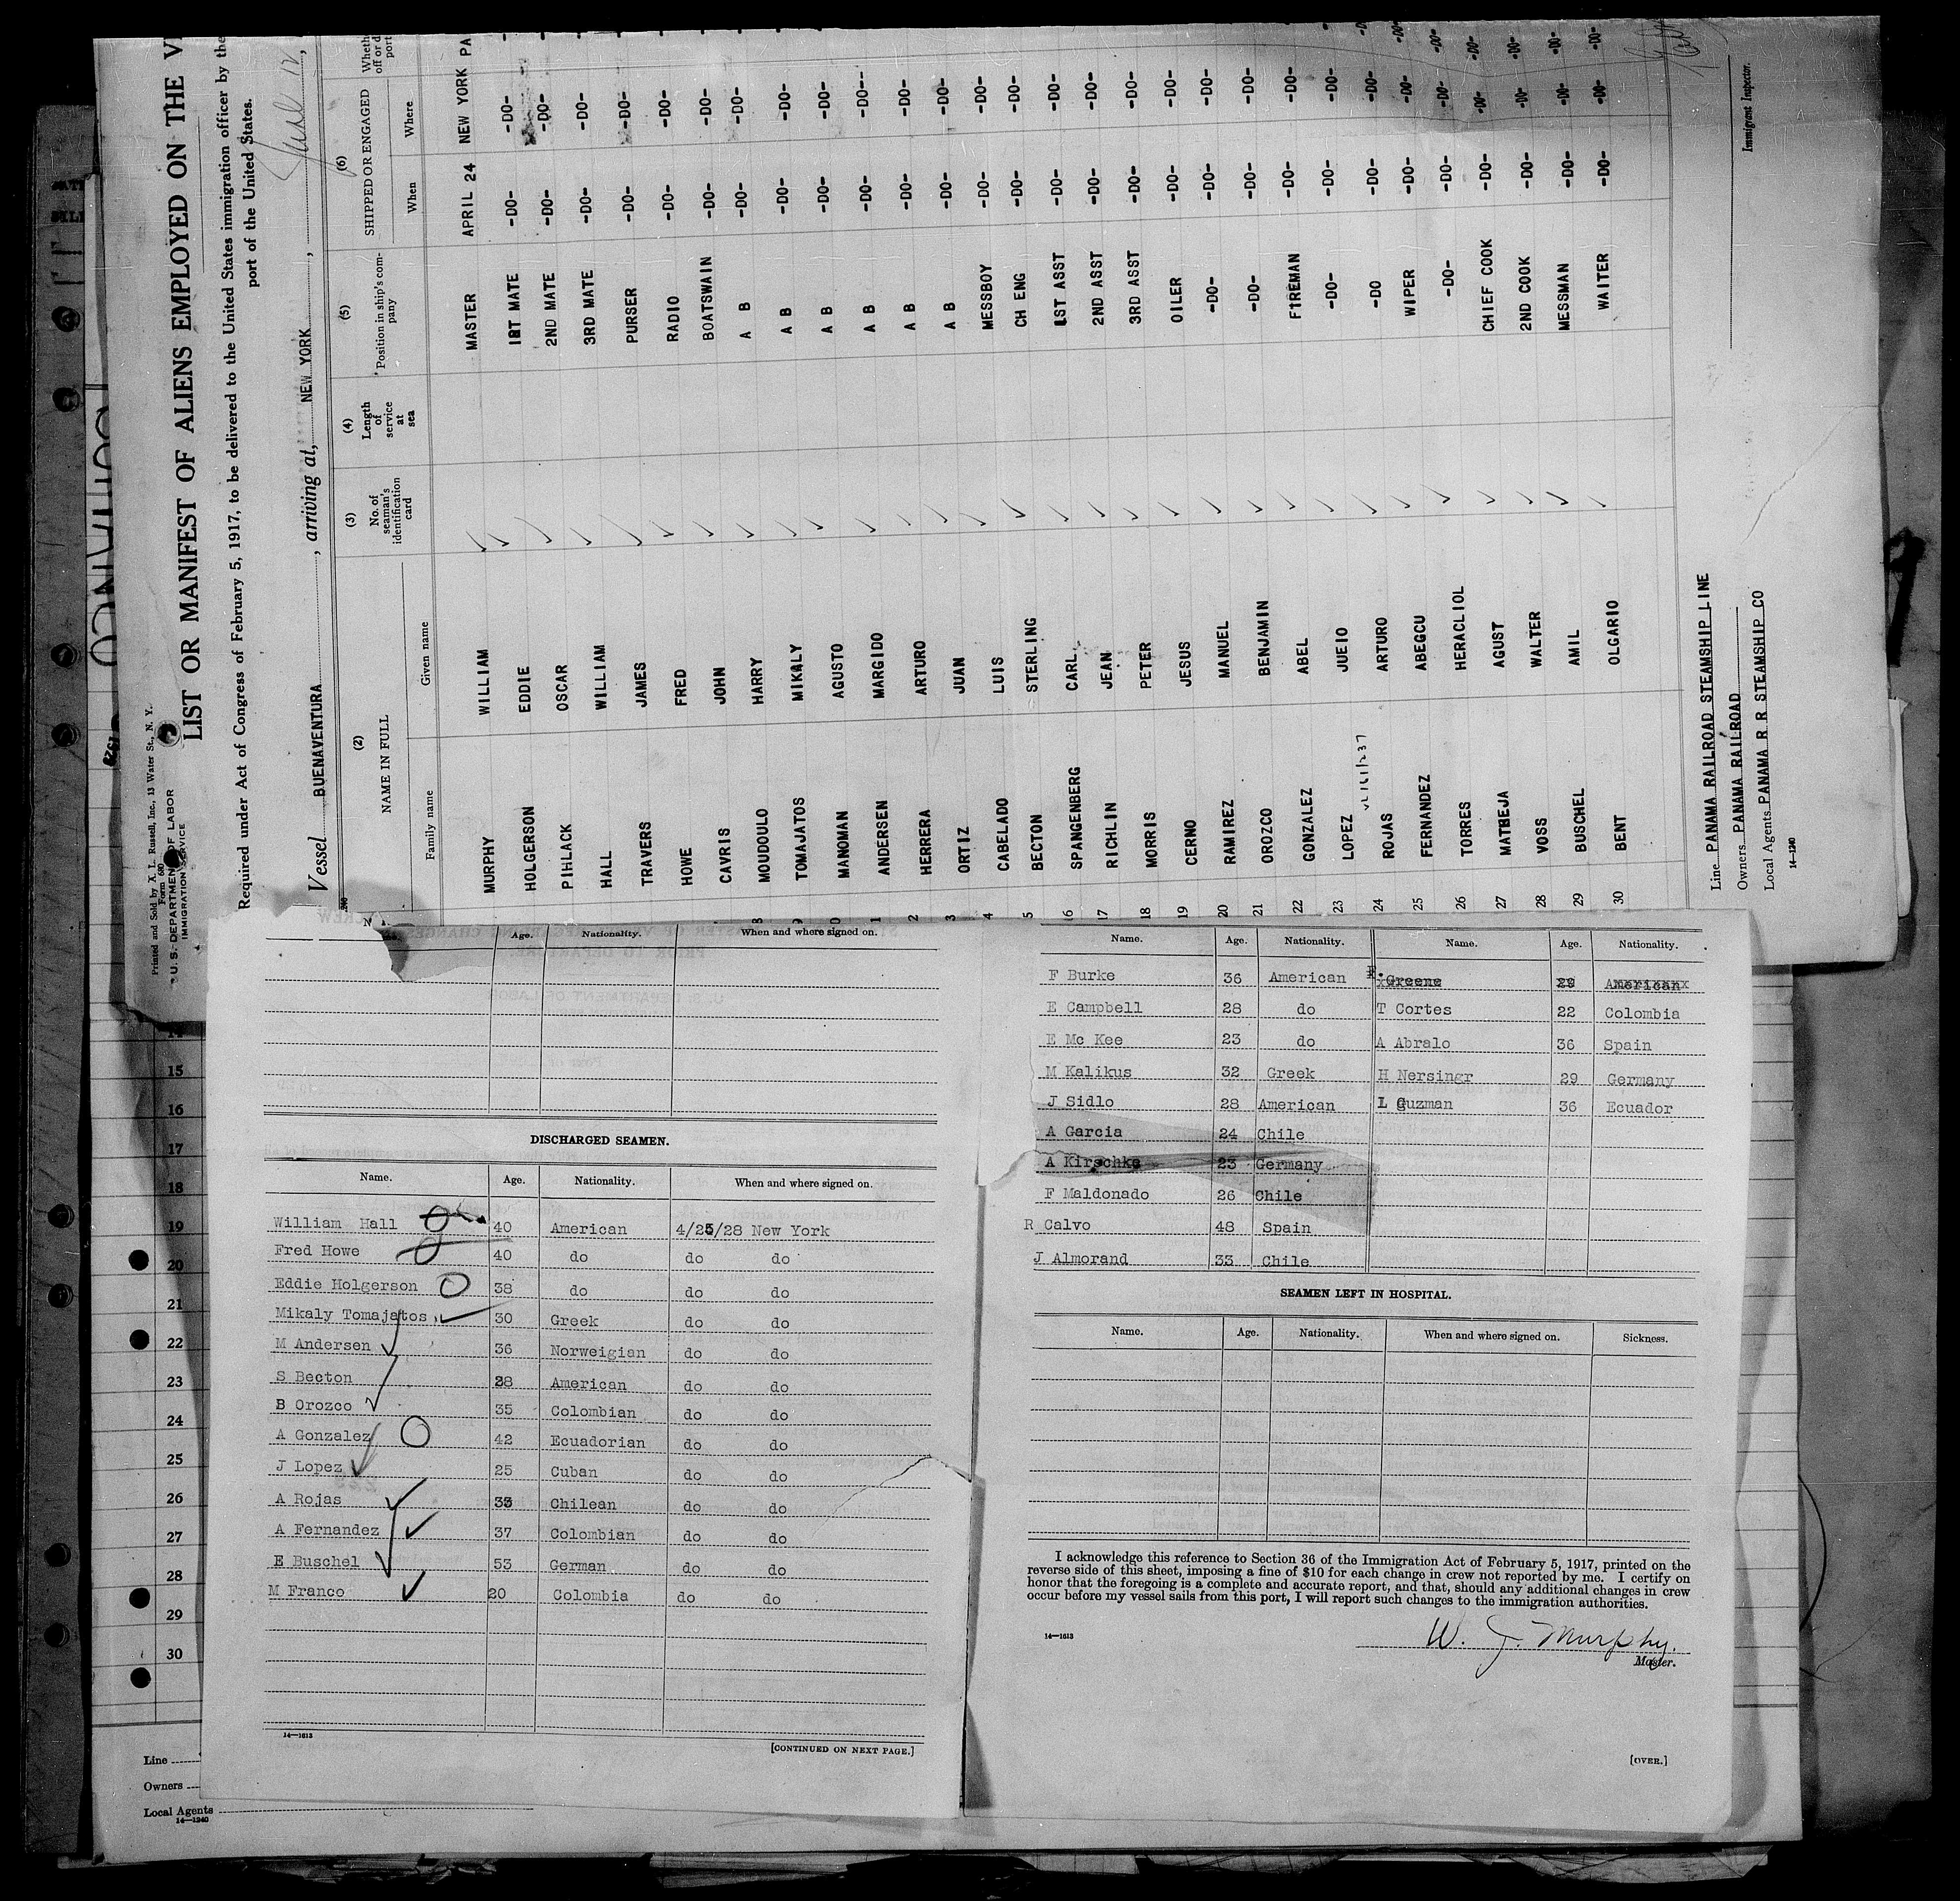 Printed and Sold by X. L. Russell, Inc., 13 Water St., N. Y.
Form 680
U. S. DEPARTMENT OF LABOR
IMMIGRATION SERVICE
LIST OR MANIFEST OF ALIENS EMPLOYED ON THE
Required under Act of Congress of February 5, 1917, to be delivered to the United States immigration officer by the
port of the United States.
Vessel BUENAVENTURA, arriving at, NEW YORK, June 12,
(2) (3) (4) (5) (6)
NAME IN FULL No. of seaman's identification card Length of service at sea Position in ship's company SHIPPED OR ENGAGED
Family name Given name When Where
MURPHY WILLIAM MASTER APRIL 24 NEW YORK PA
HOLGERSON EDDIE 1ST MATE -DO- -DO-
PIHLACK OSCAR 2ND MATE -DO- -DO-
HALL WILLIAM 3RD MATE -DO- -DO-
TRAVERS JAMES PURSER -DO- -DO-
HOWE FRED RADIO -DO- -DO-
CAVRIS JOHN BOATSWAIN -DO- -DO-
8 MOUDOULO HARRY A B -DO- -DO-
9 TOMAJATOS MIKALY A B -DO- -DO-
0 MANOMAN AGUSTO A B -DO- -DO-
1 ANDERSEN MARGIDO A B -DO- -DO--
2 HERRERA ARTURO A B -DO- -DO-
3 ORTIZ JUAN A B -DO- -DO-
4 CABELADO LUIS MESSBOY -DO- -DO-
5 BECTON STERLING CH ENG -DO- -DO-
16 SPANGENBERG CARL 1ST ASST -DO- -DO-
17 RICHLIN JEAN 2ND ASST -DO- -DO-
18 MORRIS PETER 3RD ASST -DO- -DO-
19 CERNO JESUS OILER -DO- -DO-
20 RAMIREZ MANUEL -DO- -DO- -DO-
21 OROZCO BENJAMIN -DO- -DO- -DO-
22 GONZALEZ ABEL FIREMAN -DO- -DO-
23 LOPEZ JUEIO -DO- -DO- -DO-
24 ROJAS ARTURO -DO -DO- -DO- -DO-
25 FERNANDEZ ABEGCU WIPER -DO- -DO- -DO-
26 TORRES HERACLIOL -DO- -DO- -DO- -DO-
27 MATBEJA AGUST CHIEF COOK -DO- -DO- -DO-
28 VOSS WALTER 2ND COOK -DO- -DO- -DO-
29 BUSCHEL AMIL MESSMAN -DO- -DO- -DO-
30 BENT OLGARIO WAITER -DO- -DO- -DO-
Line PANAMA RAILROAD STEAMSHIP LINE
Owners PANAMA RAILROAD
Local Agents PANAMA R R STEAMSHIP CO
14—1240
Immigrant Inspector.
Age. Nationality. When and where signed on.
DISCHARGED SEAMEN.
Name. Age. Nationality. When and where signed on.
William Hall 40 American 4/25/28 New York
Fred Howe 40 do do do
Eddie Holgerson 38 do do do
Mikaly Tomajatos 30 Greek do do
M Andersen 36 Norweigian do do
S Becton 38 American do do
B Orozco 35 Colombian do do
A Gonzalez 42 Ecuadorian do do
J Lopez 25 Cuban do do
A Rojas 33 Chilean do do
A Fernandez 37 Colombian do do
E Buschel 53 German do do
M Franco 20 Colombia do do
14—1613
[CONTINUED ON NEXT PAGE.]
Name. Age. Nationality. Name. Age. Nationality.
F Burke 36 American Greene 29 American
E Campbell 28 do T Cortes 22 Colombia
E Mc Kee 23 do A Abralo 36 Spain
M Kalikus 32 Greek H Nersingr 29 Germany
J Sidlo 28 American L Guzman 36 Ecuador
A Garcia 24 Chile
A Kirschke 23 Germany
F Maldonado 26 Chile
R Calvo 48 Spain
J Almorand 33 Chile
SEAMEN LEFT IN HOSPITAL.
Name. Age. Nationality. When and where signed on. Sickness.
I acknowledge this reference to Section 36 of the Immigration Act of February 5, 1917, printed on the
reverse side of this sheet, imposing a fine of $10 for each change in crew not reported by me. I certify on
honor that the foregoing is a complete and accurate report, and that, should any additional changes in crew
occur before my vessel sails from this port, I will report such changes to the immigration authorities.
14—1613
W. J. Murphy.
Master.
[OVER.]
14
15
16
17
18
19
20
21
22
23
24
25
26
27
28
29
30
Line
Owners
Local Agents
14—1240